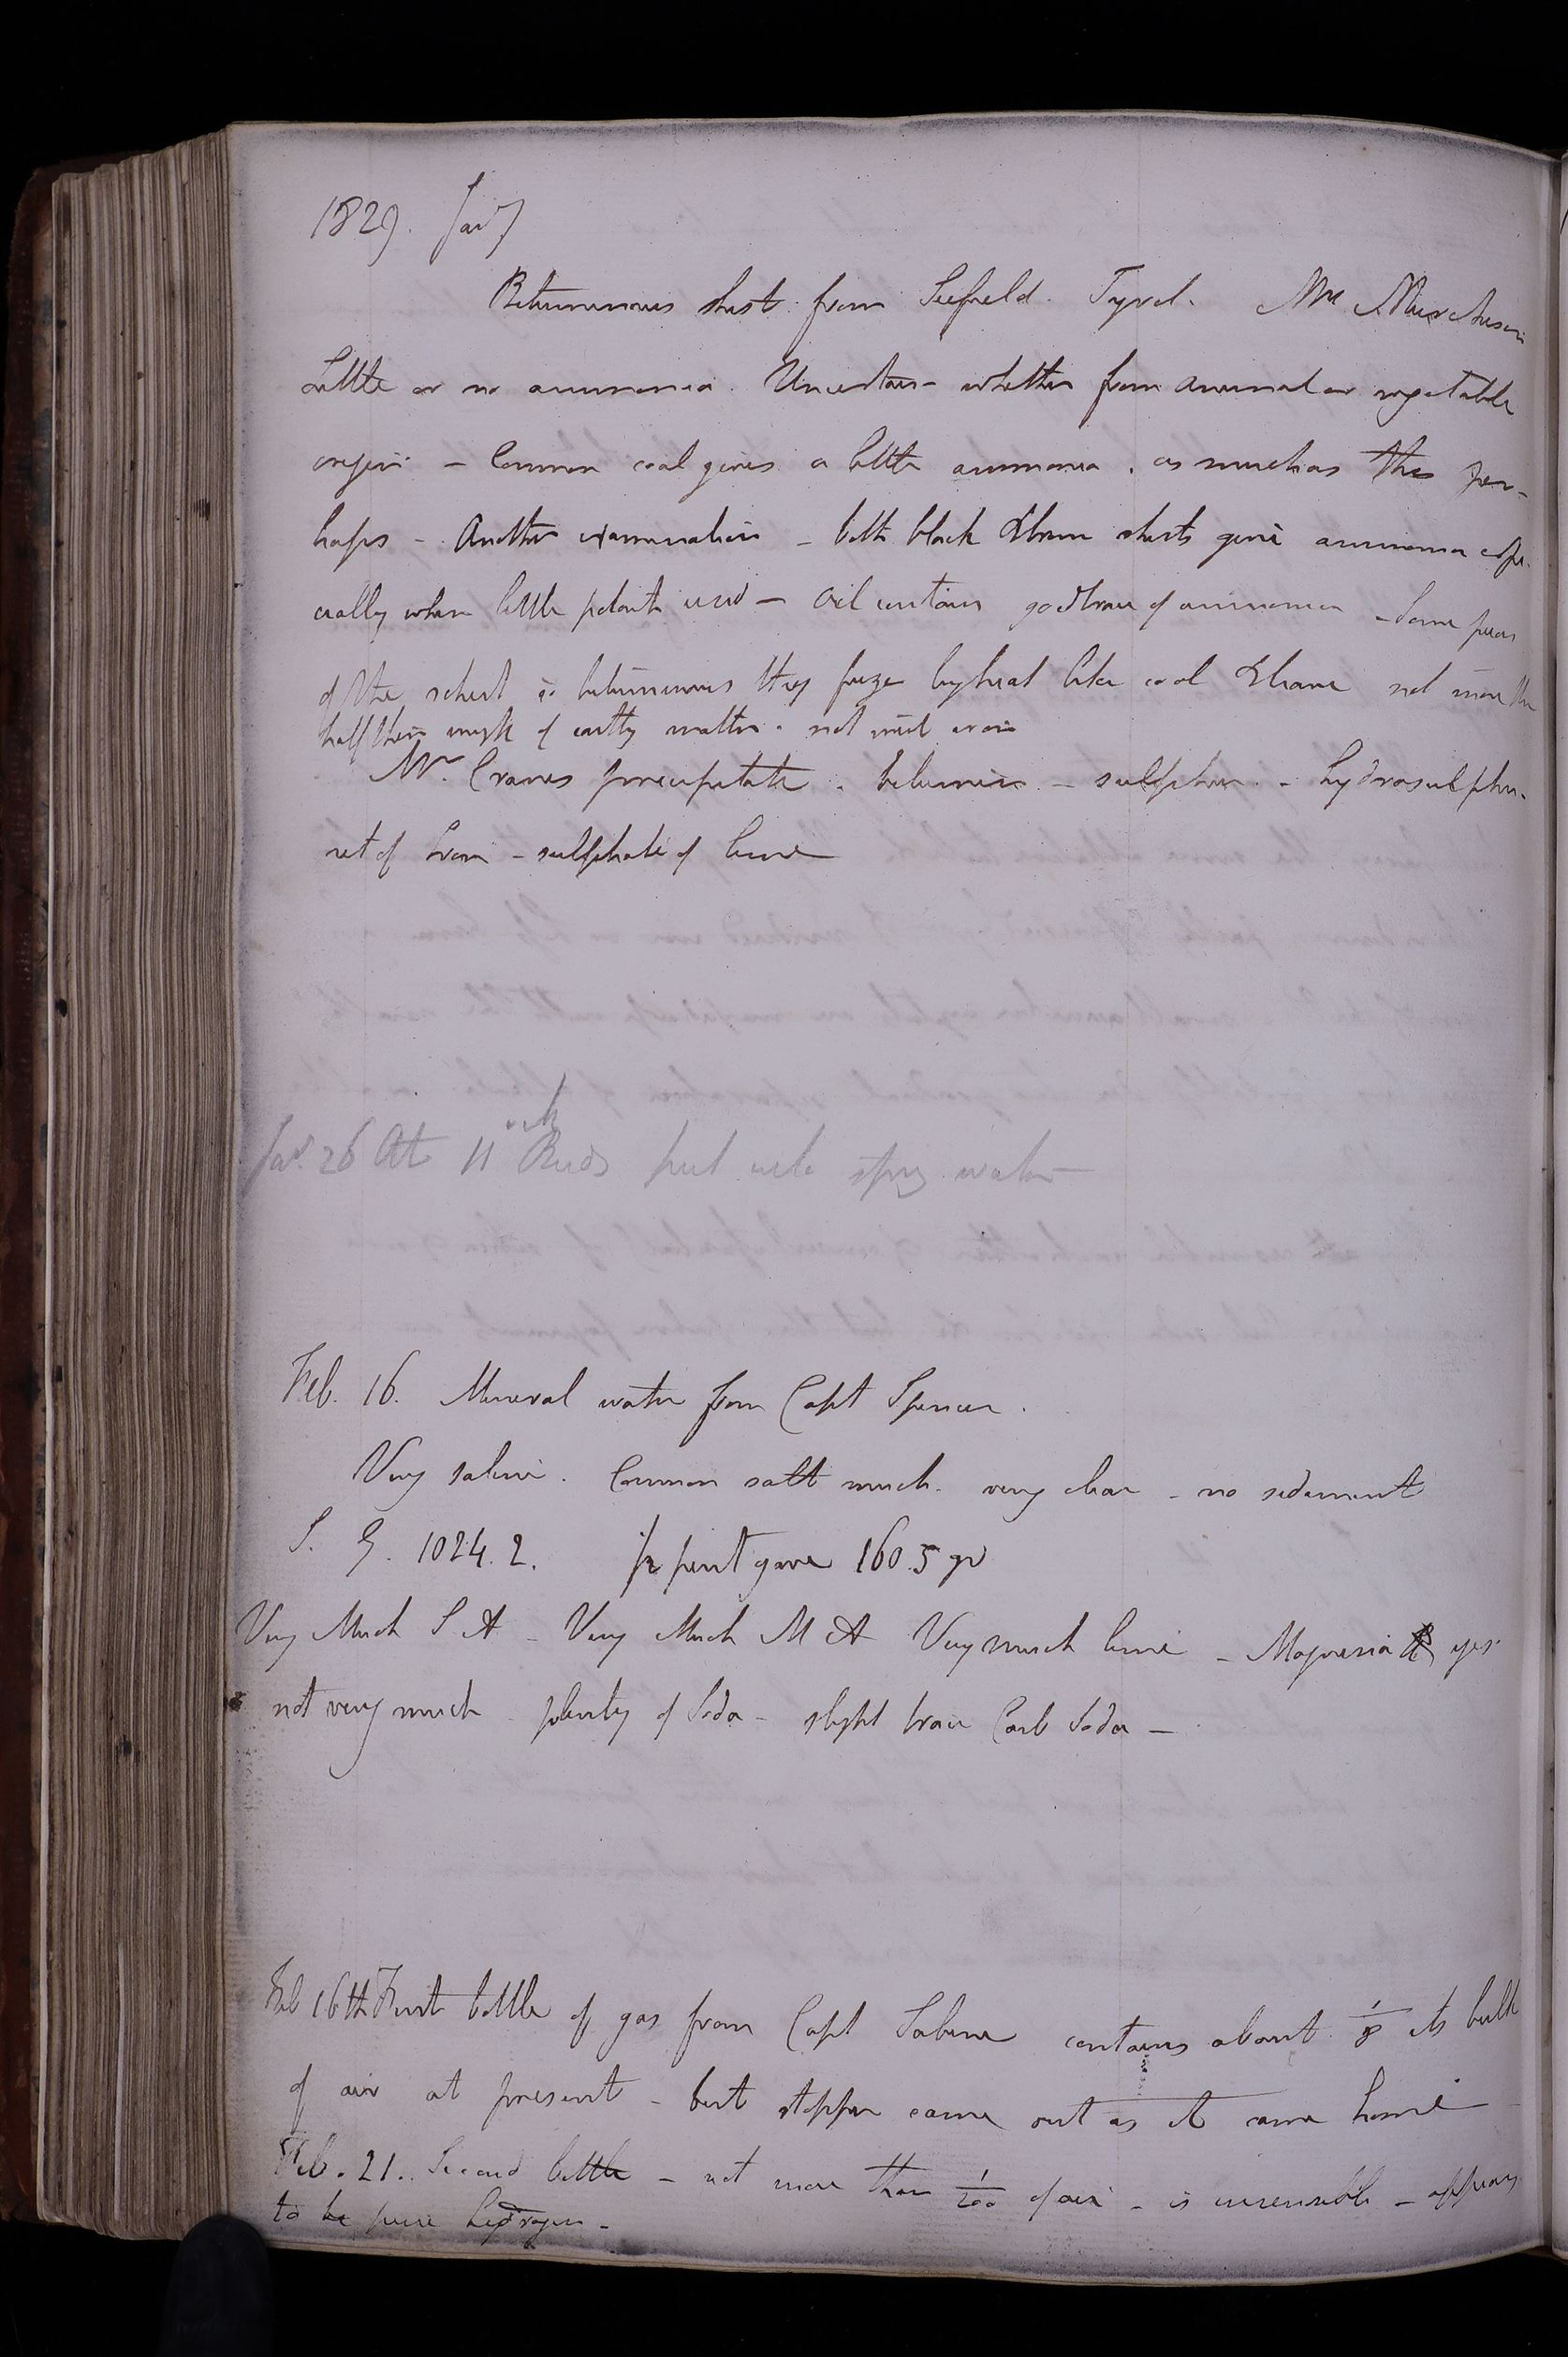 1829. Jany
Bituminous shist from Seefeld. Tyrol. Mr Murchison
Little or no ammonia. Uncertain whether from animal or vegetable
origin - Common coal gives a little ammonia. as much as this per-
haps - Another examination - both black & brown shists give ammonia espe-
cially when little potash used - Oil contains good trace of ammonia - Some pieces
of the schist so bituminous they fuze by heat like coal & leave not more than
half their weight of earthy matter. not much iron
Mr. Cranes precipitate. bitumen - sulphur - hydrosulphu-
ret of Iron - sulphate of lime
Jany. 26 At 11 o'clk Buds put into spring water
Feb. 16. Mineral water from Capt Spencer.
Very saline. Common salt much. very clear - no sediment
S. G. 1024.2. 1/2 pint gave 160.5 gr
Very Much S A - Very Much M A Very much lime - Magnesia yes
not very much plenty of Soda - slight trace Carb Soda -
Feb 16th First bottle of gas from Capt Sabine contains about 1/8 its bulk
of air at present - but stopper came out as it came home -
Feb. 21. Second bottle - not more than 1/200 of air - is insensible - appears
to be pure hydrogen -